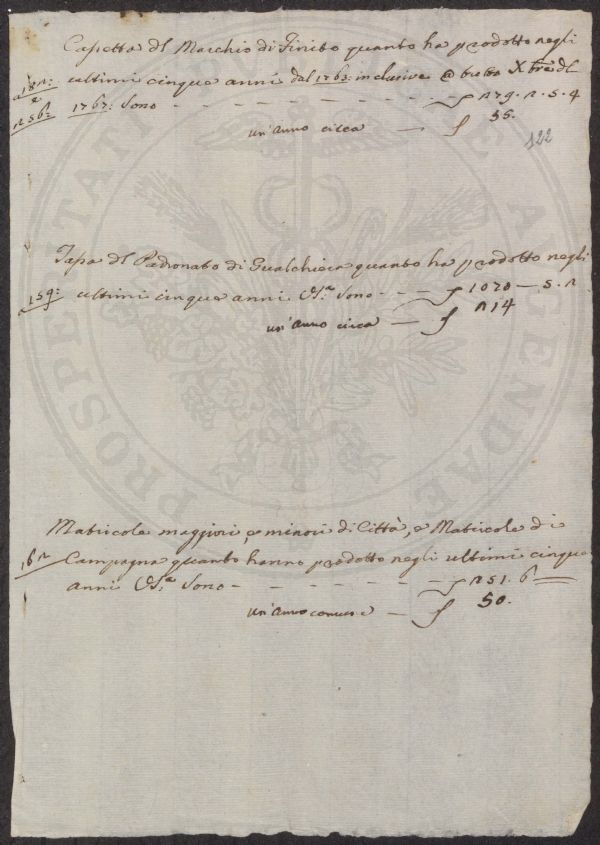 Cassetta dl Marchio di Finito quanto ha prodotto negli
ultimi cinque anni dal 1763: inclusive @ tutto Xbre dl
1767: Sono
un'anno circa
55.
122
Tassa dl Padronato di Gualchiera quanto ha prodotto negli
159:
ultimi cinque anni Sono
un'anno circa
Matricole maggiori, e minori di Città, e Matricole di
Campagna quanto hanno prodotto negli ultimi cinque
anni Sono
un'anno comune
50.
PROSPERITATI PUBLICAE AUGENDAE